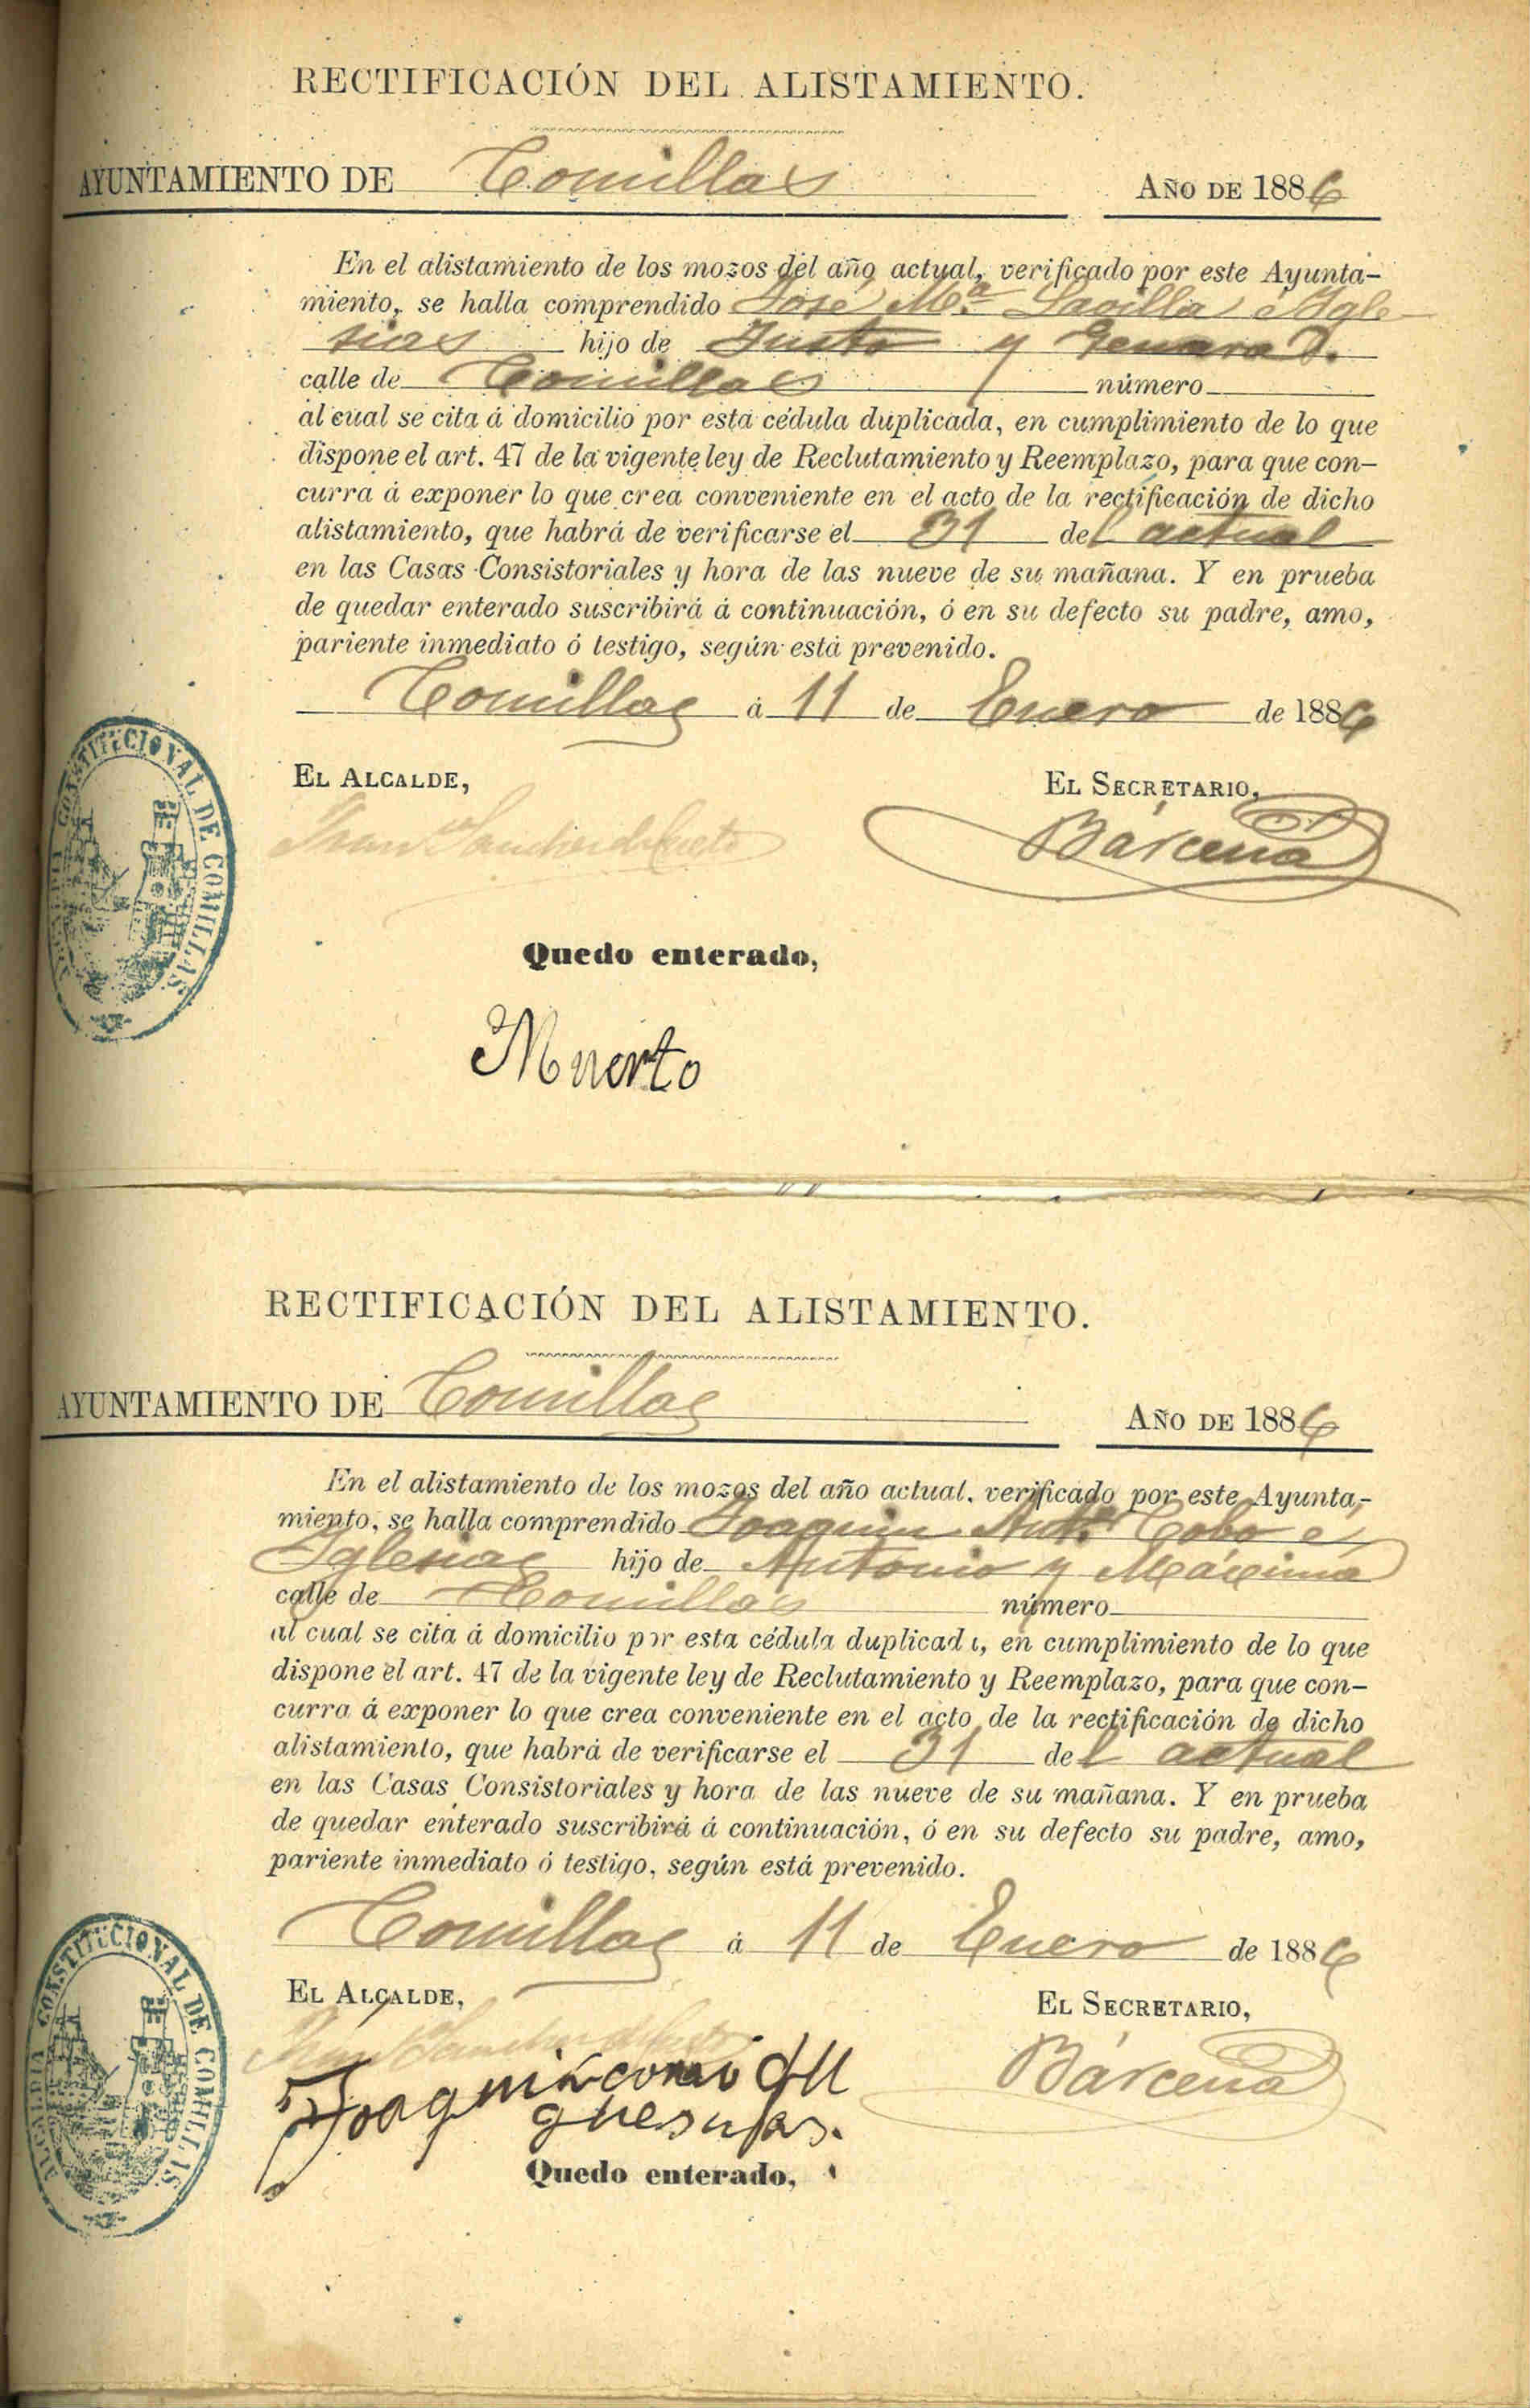 RECTIFICACIÓN DEL ALISTAMIENTO.
AYUNTAMIENTO DE Comillas AÑO DE 1886
En el alistamiento de los mozos del año actual, verificado por este Ayunta-
miento, se halla comprendido José Mª. Savilla e Igle-
sias hijo de Justo y Genara D.
calle de Comillas número
al cual se cita á domicilio por esta cédula duplicada, en cumplimiento de lo que
dispone el art. 47 de la vigente ley de Reclutamiento y Reemplazo, para que con-
curra á exponer lo que crea conveniente en el acto de la rectificación de dicho
alistamiento, que habrá de verificarse el 31 del actual
en las Casas Consistoriales y hora de las nueve de su mañana. Y en prueba
de quedar enterado suscribirá á continuación, ó en su defecto su padre, amo,
pariente inmediato ó testigo, según está prevenido.
Comillas á 11 de Enero de 1886
EL ALCALDE, EL SECRETARIO,
Juan Sanchez de Cueto Bárcena
ALCALDIA CONSTITUCIONAL DE COMILLAS
Quedo enterado,
Muerto
RECTIFICACIÓN DEL ALISTAMIENTO.
AYUNTAMIENTO DE Comillas AÑO DE 1886
En el alistamiento de los mozos del año actual, verificado por este Ayunta-
miento, se halla comprendido Joaquin Antº Cobo e
Iglesias hijo de Antonio y Máxima
calle de Comillas número
al cual se cita á domicilio por esta cédula duplicada, en cumplimiento de lo que
dispone el art. 47 de la vigente ley de Reclutamiento y Reemplazo, para que con-
curra á exponer lo que crea conveniente en el acto de la rectificación de dicho
alistamiento, que habrá de verificarse el 31 del actual
en las Casas Consistoriales y hora de las nueve de su mañana. Y en prueba
de quedar enterado suscribirá á continuación, ó en su defecto su padre, amo,
pariente inmediato ó testigo, según está prevenido.
Comillas á 11 de Enero de 1886
EL ALCALDE, EL SECRETARIO,
Juan Sanchez de Cueto Bárcena
Joaquin
ALCALDIA CONSTITUCIONAL DE COMILLAS
Quedo enterado,